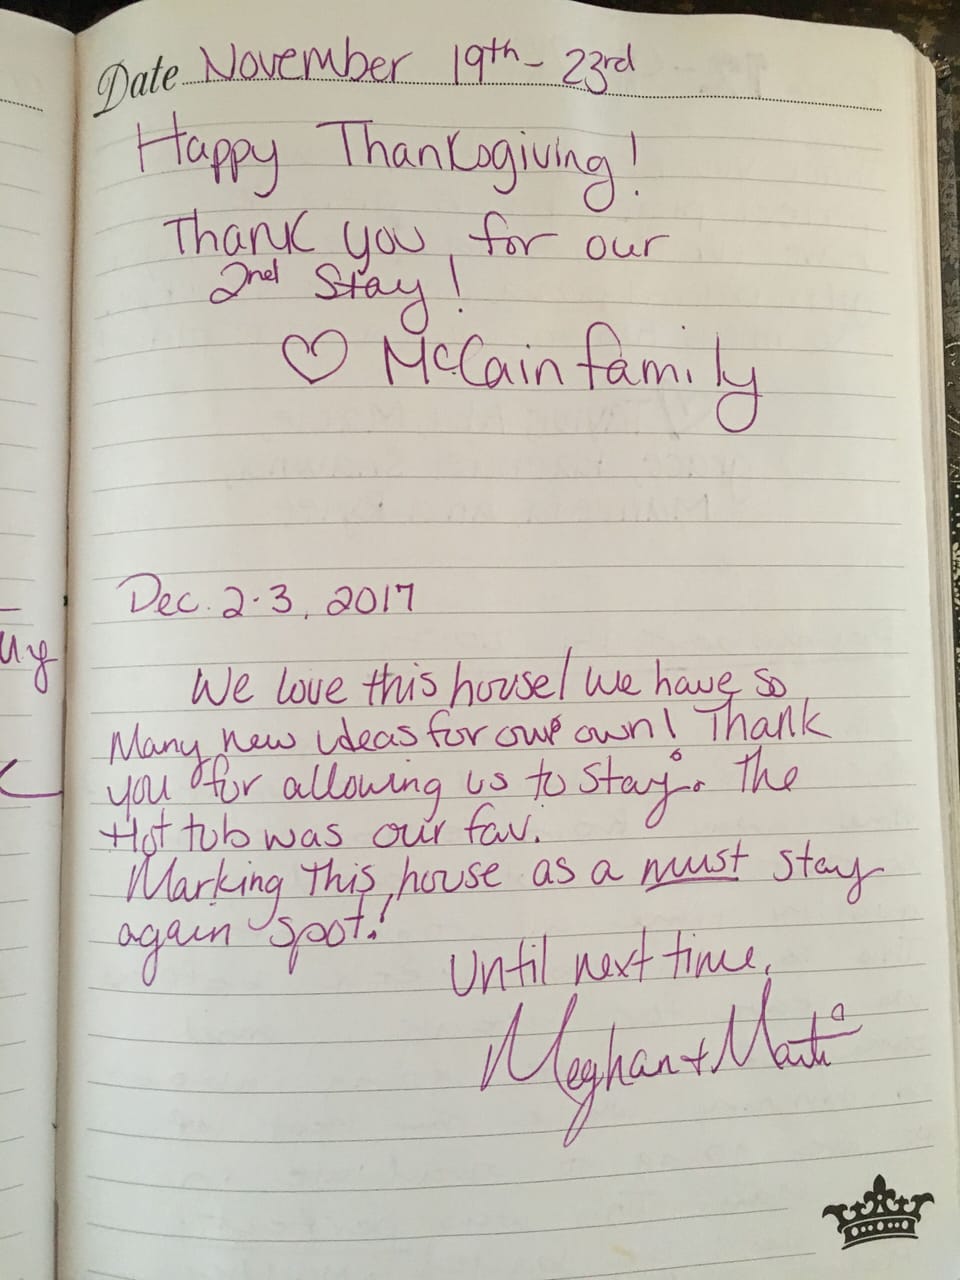 Date November 19th - 23rd
Happy Thanksgiving!
Thank you for our
2nd Stay!
♡ McCain family
Dec. 2-3, 2017
We love this house! We have so
Many new ideas for our own! Thank
you for allowing us to stay. The
Hot tub was our fav.
Marking this house as a must stay
again spot!
Until next time,
Meghan +